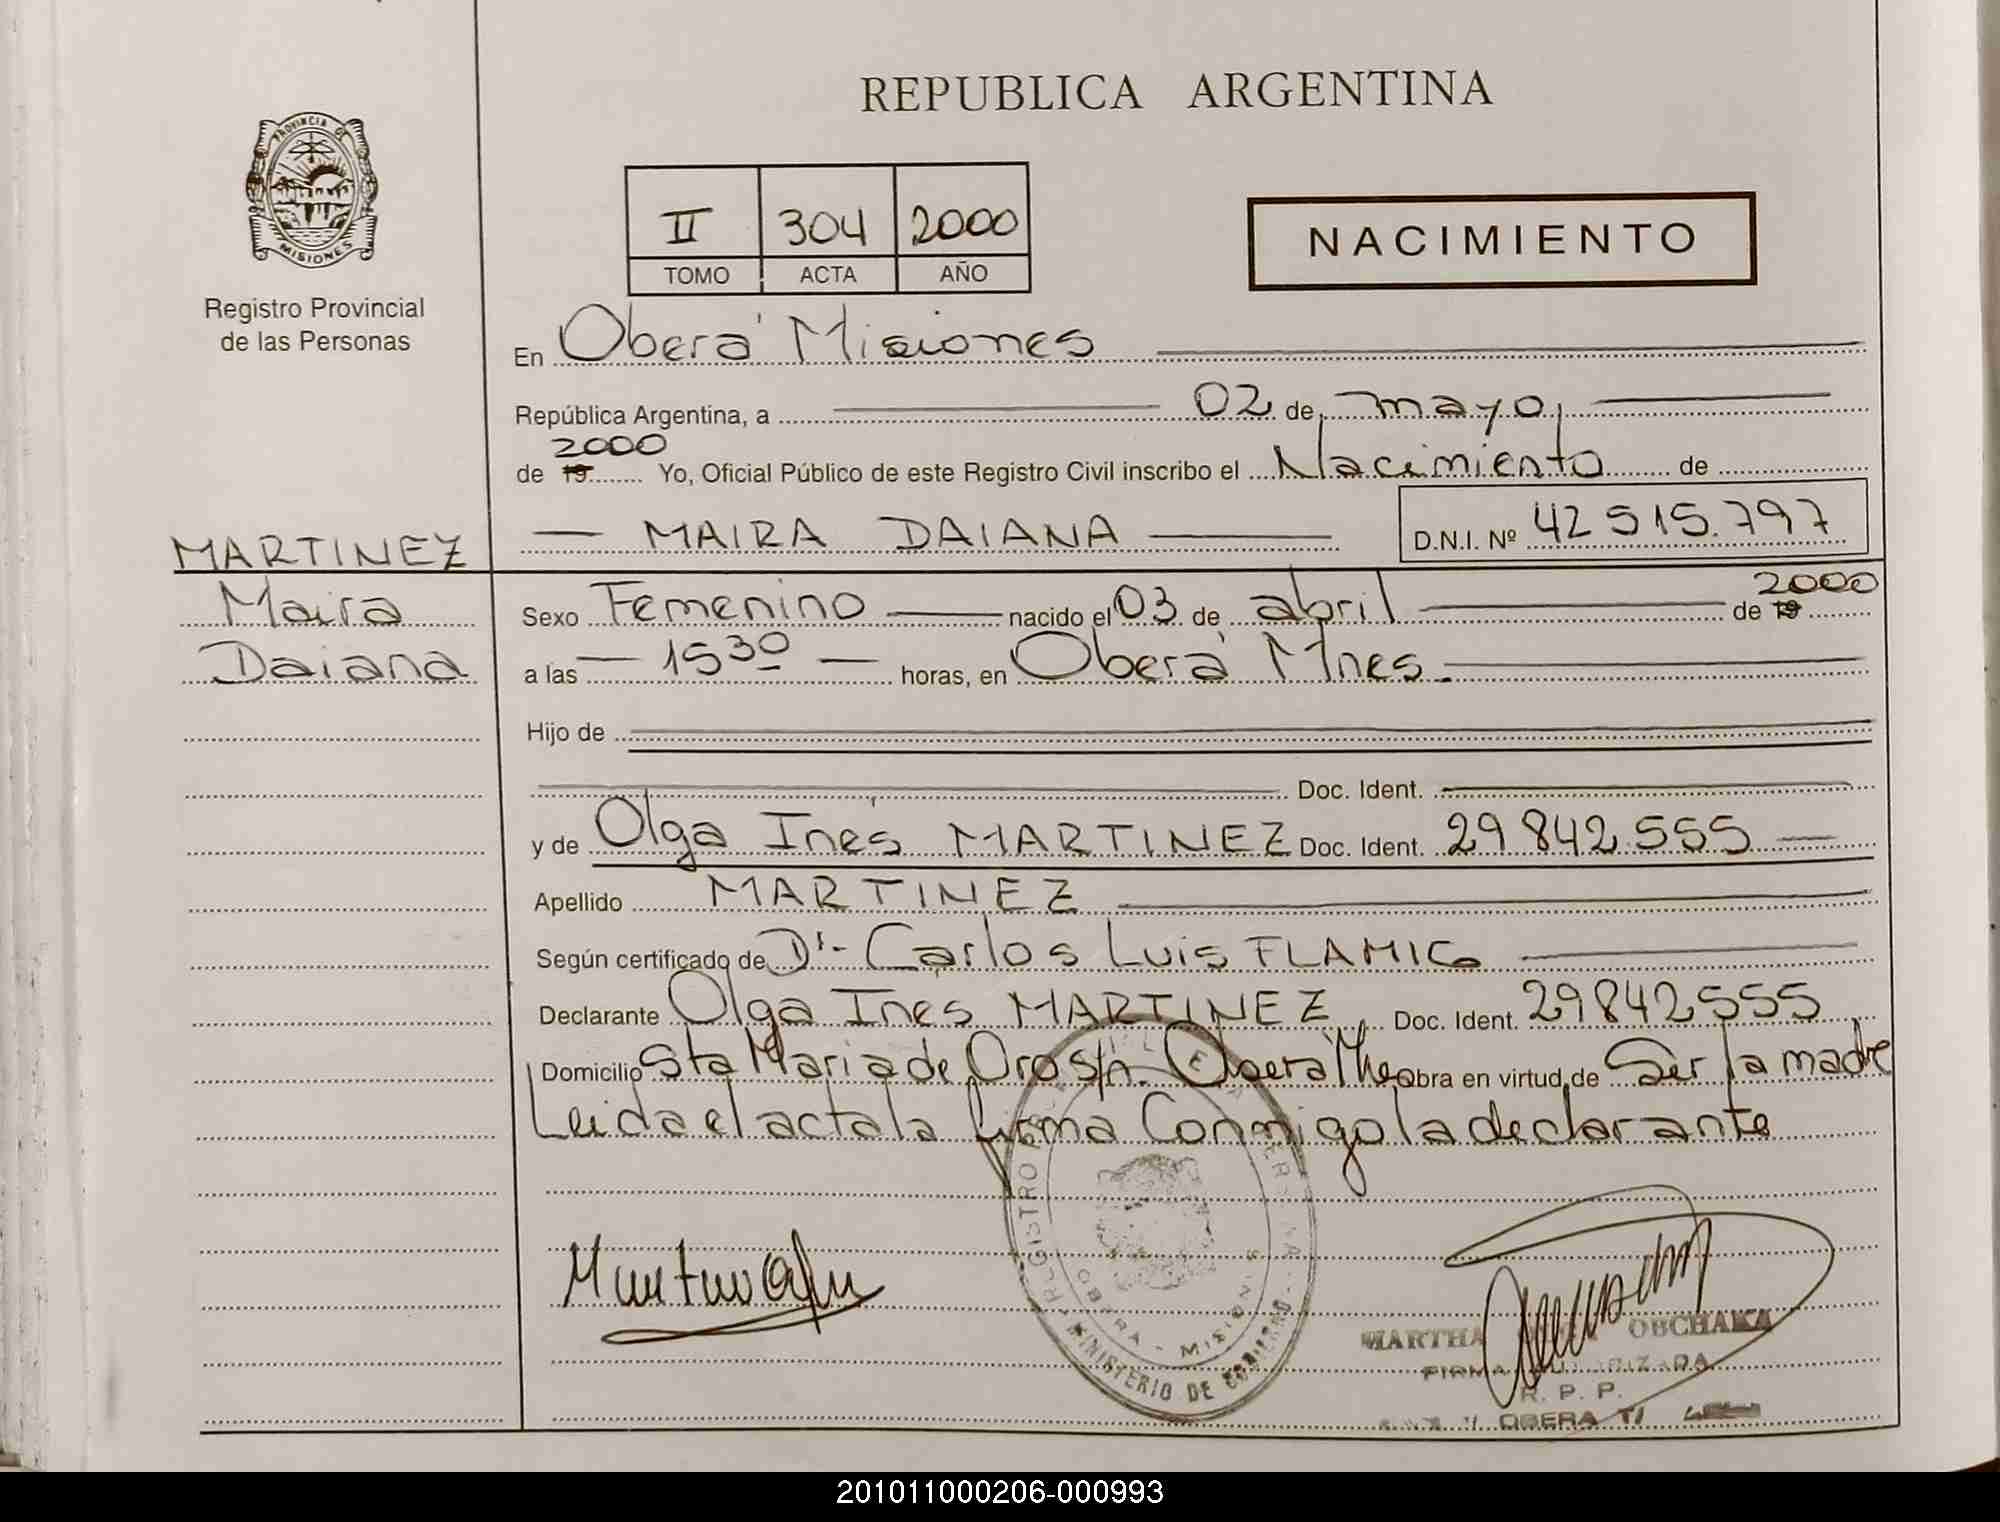 REPUBLICA ARGENTINA
PROVINCIA DE
MISIONES
Registro Provincial
de las Personas
II 304 2000
TOMO ACTA AÑO
NACIMIENTO
En Oberá Misiones
República Argentina, a 02 de mayo
de 19 2000 Yo, Oficial Público de este Registro Civil inscribo el Nacimiento de
MAIRA DAIANA D.N.I. Nº 42 515.797
MARTINEZ
Maira
Daiana
Sexo Femenino nacido el 03 de abril de 19 2000
a las 15 30 horas, en Oberá Mnes.
Hijo de
Doc. Ident.
y de Olga Inés MARTINEZ Doc. Ident. 29 842 555
Apellido MARTINEZ
Según certificado de Dr. Carlos Luis FLAMIG
Declarante Olga Ines MARTINEZ Doc. Ident. 29842555
Domicilio Sta Maria de Oro s/n. Oberá Mnes Obra en virtud de Ser la madre
Leida el acta la firma Conmigo la declarante
REGISTRO
OBERA - MISIONES
MINISTERIO DE GOBIERNO
MARTHA OBCHAKA
FIRMA AUTORIZADA
R. P. P.
OBERA
201011000206-000993